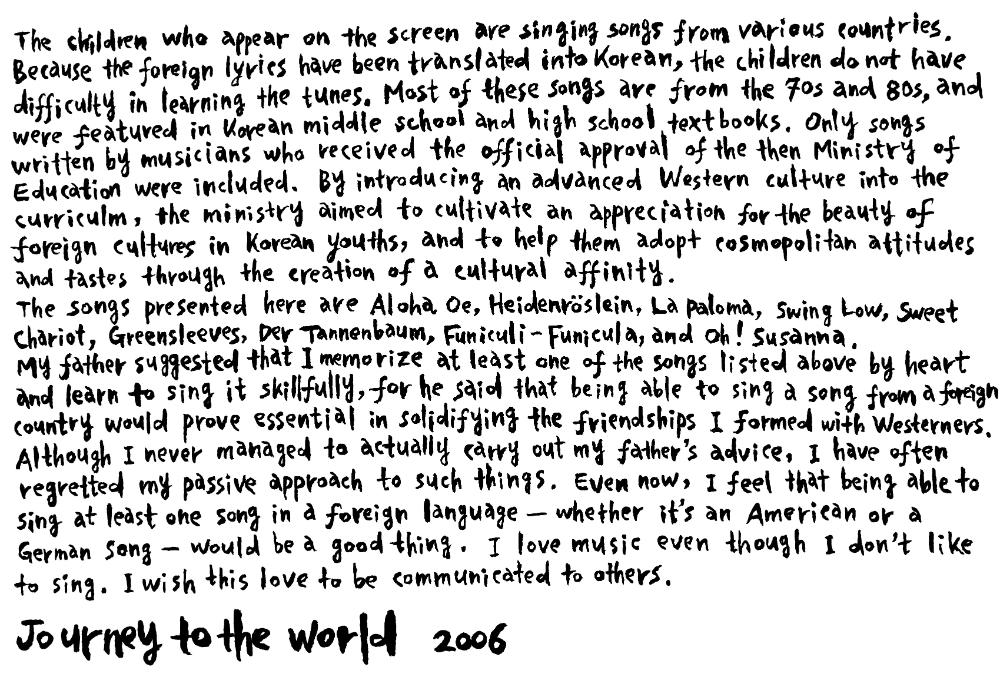 The children who appear on the screen are singing songs from various countries.
Because the foreign lyrics have been translated into Korean, the children do not have
difficulty in learning the tunes. Most of these songs are from the 70s and 80s, and
were featured in Korean middle school and high school textbooks. Only songs
written by musicians who received the official approval of the then Ministry of
Education were included. By introducing an advanced Western culture into the
curriculm, the ministry aimed to cultivate an appreciation for the beauty of
foreign cultures in Korean youths, and to help them adopt cosmopolitan attitudes
and tastes through the creation of a cultural affinity.
The songs presented here are Aloha Oe, Heidenröslein, La paloma, Swing Low, Sweet
Chariot, Greensleeves, Der Tannenbaum, Funiculi-Funicula, and Oh! Susanna.
My father suggested that I memorize at least one of the songs listed above by heart
and learn to sing it skillfully, for he said that being able to sing a song from a foreign
country would prove essential in solidifying the friendships I formed with Westerners.
Although I never managed to actually carry out my father's advice, I have often
regretted my passive approach to such things. Even now, I feel that being able to
sing at least one song in a foreign language — whether it's an American or a
German song — would be a good thing. I love music even though I don't like
to sing. I wish this love to be communicated to others.
Journey to the world 2006